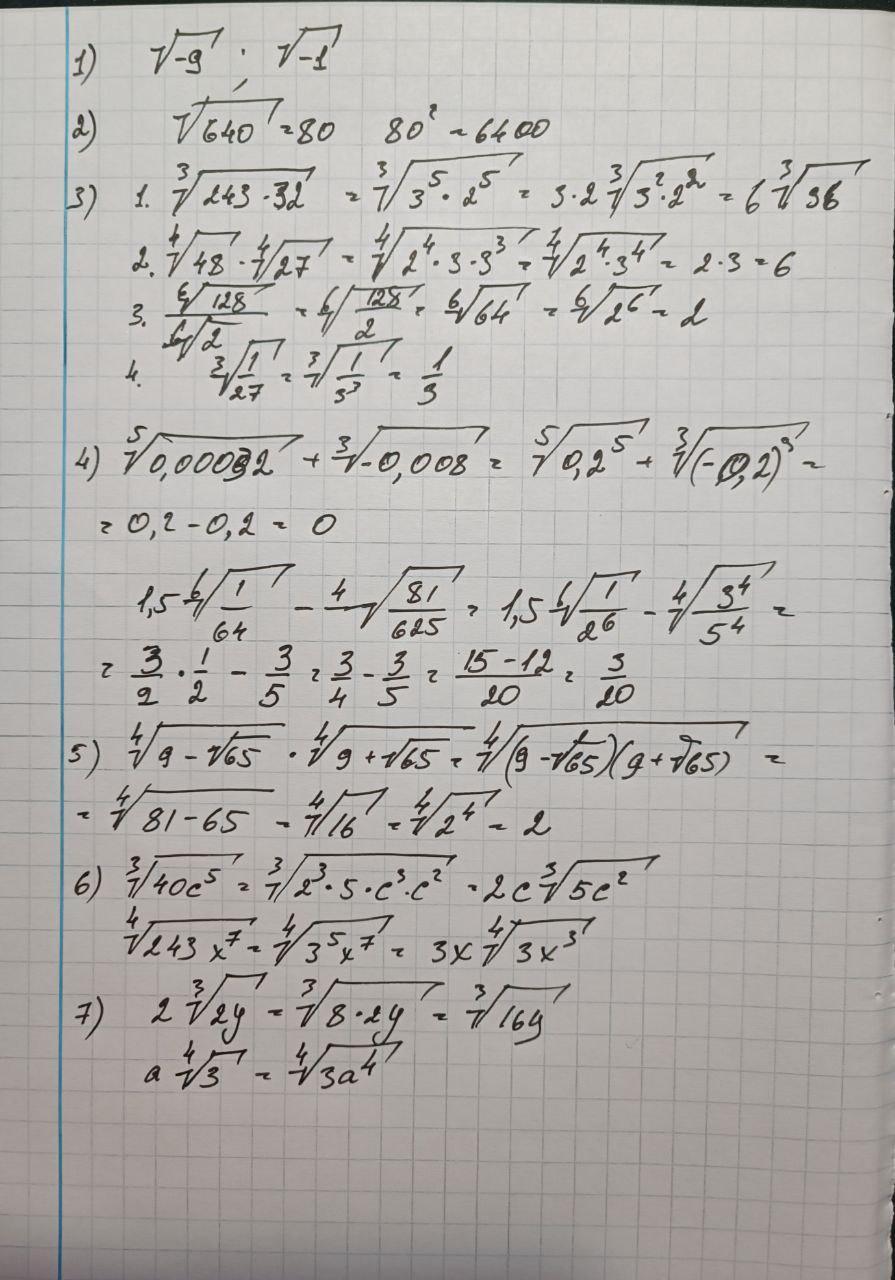 1) √-9 · √-1
2) √640 = 80 80² = 6400
3) 1. ∛(243·32) = ∛(3⁵·2⁵) = 3·2∛(3²·2²) = 6∛36
2. ∜48 · ∜27 = ∜(2⁴·3·3³) = ∜(2⁴·3⁴) = 2·3 = 6
3. ⁶√128 / ⁶√2 = ⁶√(128/2) = ⁶√64 = ⁶√2⁶ = 2
4. ∛(1/27) = ∛(1/3³) = 1/3
4) ⁵√0,00032 + ∛-0,008 = ⁵√0,2⁵ + ∛(-0,2)³ =
= 0,2 - 0,2 = 0
1,5 ⁶√(1/64) - ∜(81/625) = 1,5 ⁶√(1/2⁶) - ∜(3⁴/5⁴) =
= 3/2 · 1/2 - 3/5 = 3/4 - 3/5 = (15-12)/20 = 3/20
5) ∜(9-√65) · ∜(9+√65) = ∜((9-√65)(9+√65)) =
= ∜(81-65) = ∜16 = ∜2⁴ = 2
6) ∛(40c⁵) = ∛(2³·5·c³·c²) = 2c∛(5c²)
∜(243x⁷) = ∜(3⁵x⁷) = 3x∜(3x³)
7) 2∛(2y) = ∛(8·2y) = ∛(16y)
a∜3 = ∜(3a⁴)